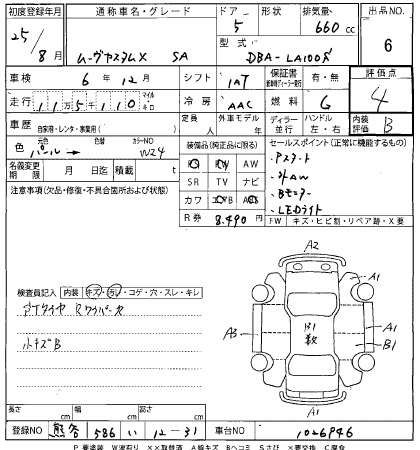 初度登録年月 通称車名・グレード ドア 形状 排気量 出品No
25/8月 ムーヴカスタムX SA 5 660cc 6
型式 DBA-LA100S
車検 6年12月 シフト IAT 保証書 有・無 評価点 4
走行 115,110 マイル キロ 冷房 AAC 燃料 G
車歴 自家用・レンタ・事業用( ) 定員 人 外車モデル 年 ディーラー 並行 ハンドル 左・右 内装評価 B
色 元色 パール→ 色替 カラーNO W24 装備品(純正品に限る) セールスポイント(正常に機能するもの)
名義変更期限 月 日迄 積載 t
PS PW AW
SR TV ナビ
カワ エアB ABS
R券 8,490円
注意事項(欠品・修復・不具合箇所および状態)
・アスタート
・BモニA-
・LEDライト
FW キズ・ヒビ割・リペア跡・X要
検査員記入 内装 キズ・汚レ・コゲ・穴・スレ・キレ
小キズB
A2
A1
A3
B1
数
A1
B1
A1
長さ cm 幅 cm 高さ cm
登録NO 熊谷 586 い 12-31 車台NO 1026946
P要塗装 W波有り XX取替済 A線キズ Bヘコミ Sさび X要交換 C腐食